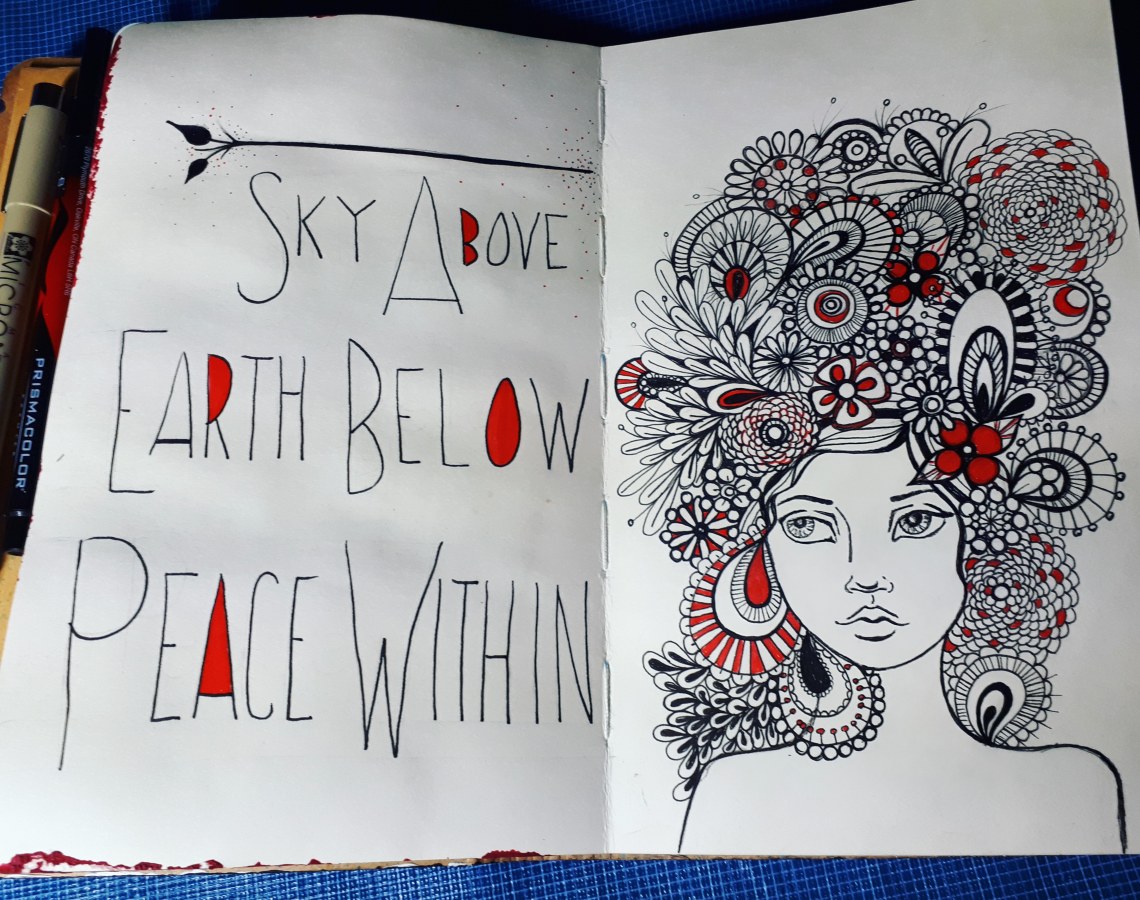 SKY ABOVE
EARTH BELOW
PEACE WITHIN
MICRON
PRISMACOLOR